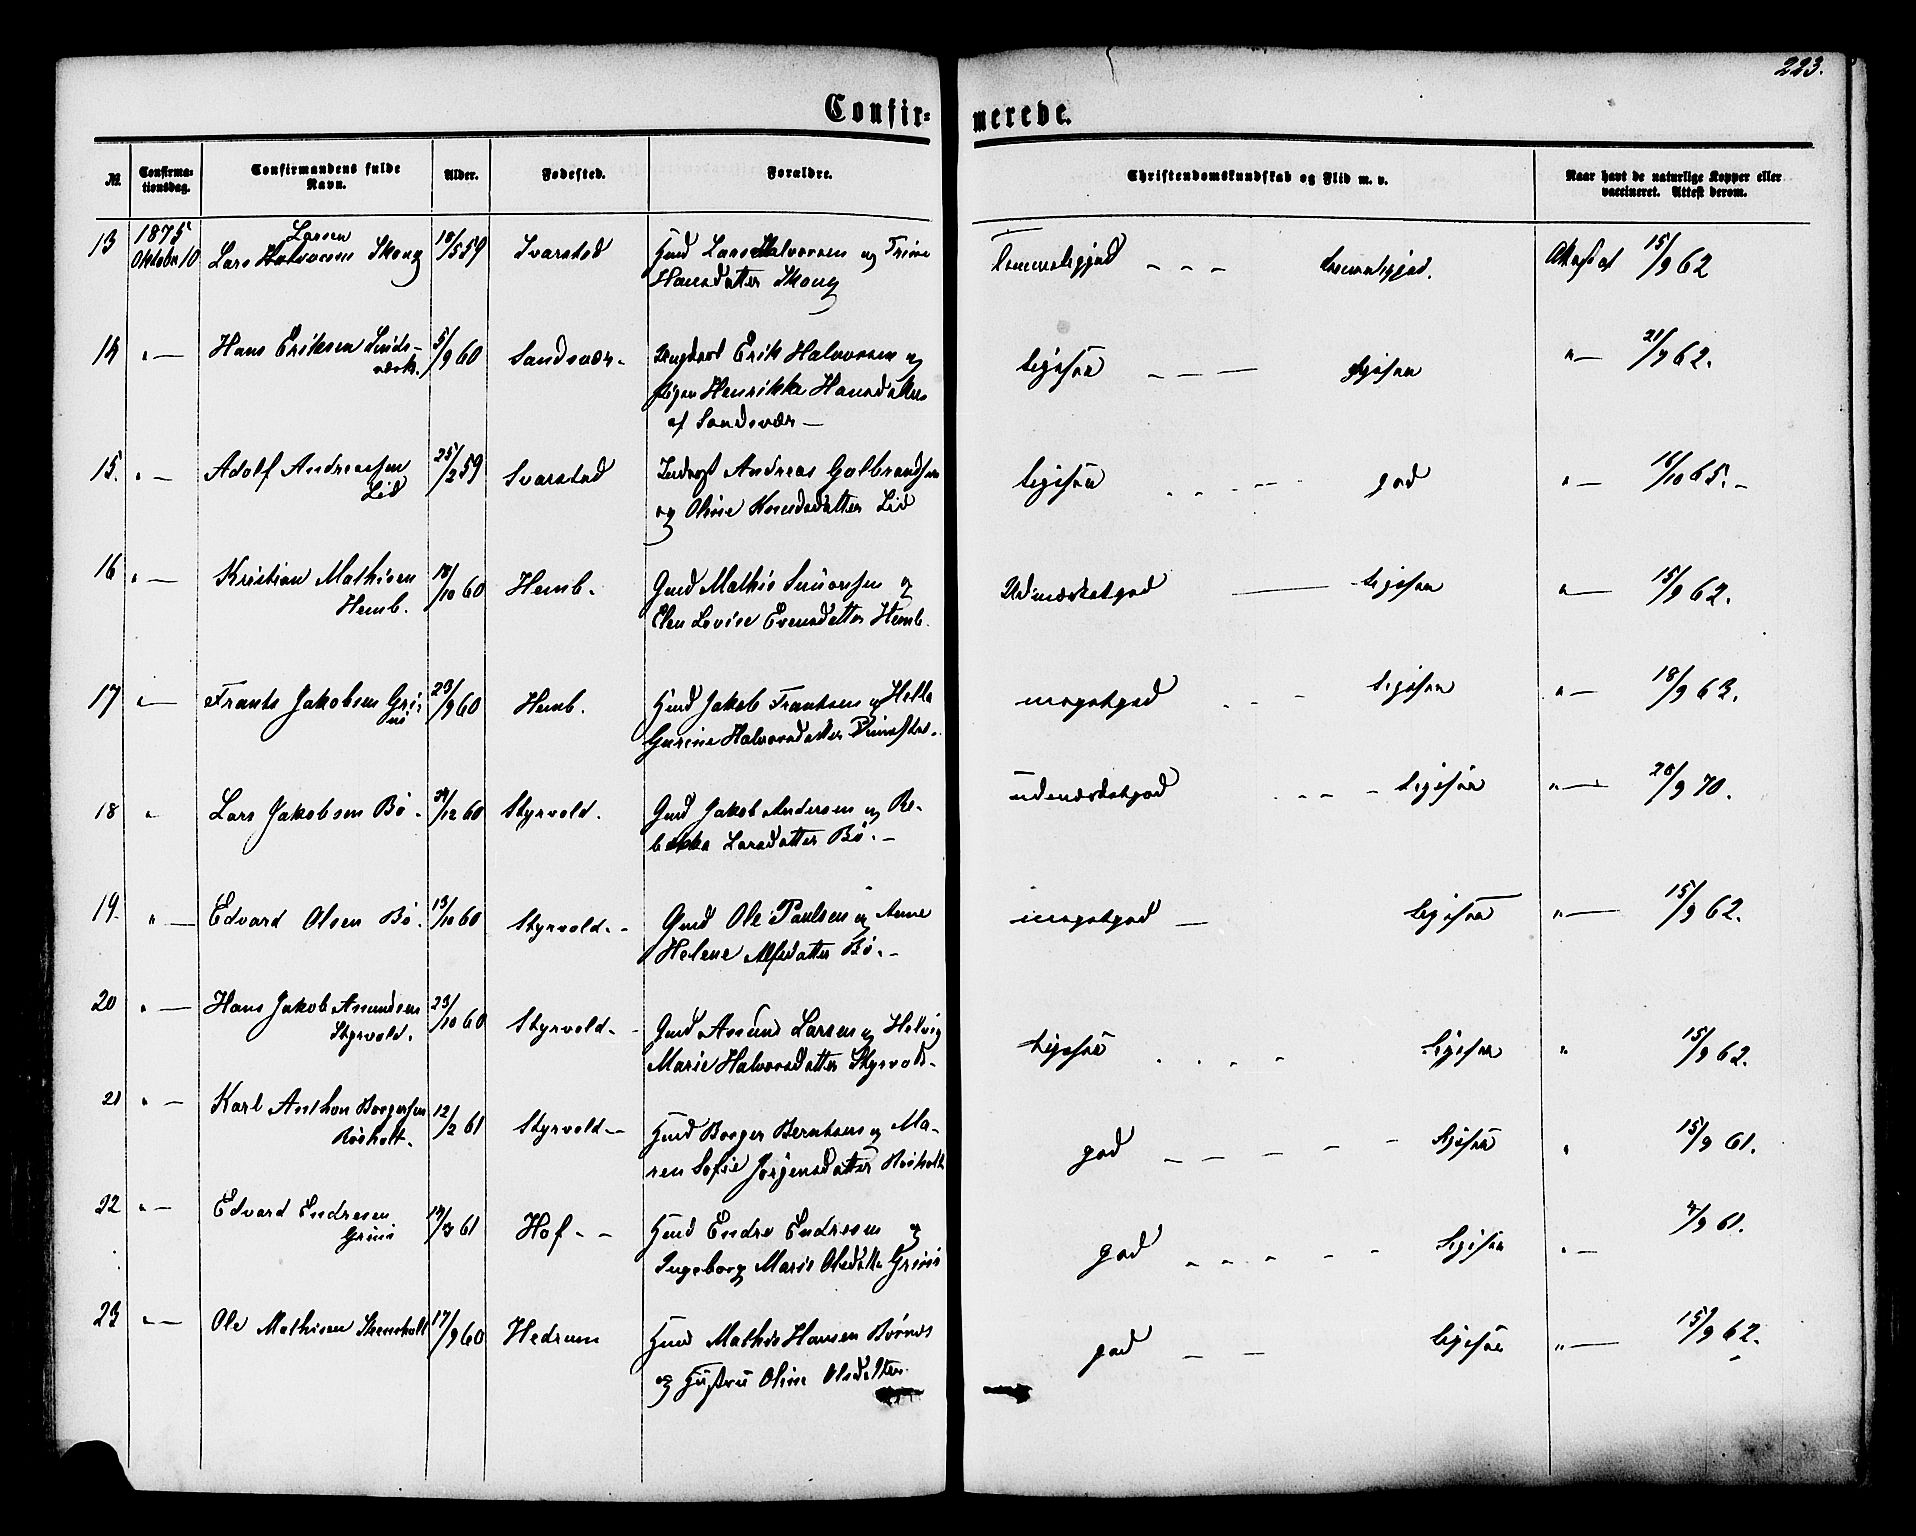 223.
Confir-
merede.
№
Confirma-
tionsdag.
Confirmandens fulde
Navn.
Alder.
Fødested.
Forældre.
Christendomskundskab og Flid m. v.
Naar havt de naturlige Kopper eller
vaccineret. Attest derom.
13 1875 Oktober 10 Lars Larsen Skoug 18/5 59 Svarstad Gmd Lars Halvorsen og Trine
Hansdatter Skoug
temmeligod - - - temmeligod. Attest af 15/9 62
14 " — Hans Eriksen Linds-
værk. 5/9 60 Sandsvær - Ungkarl Erik Halvorsen og
Pigen Henrikke Hansdatter
af Sandsvær —
ligesaa - - — ligesaa " — 21/9 62.
15. " — Adolf Andreassen
Lid 25/2 59 Svarstad Inderst Andreas Gulbrandsen
og Oline Knudsdatter Lid
ligesaa - - - - - god " — 16/10 65. -
16 " — Kristian Mathisen
Hemb. 18/10 60 Hemb. Gmd Mathis Simonsen og
Elen Lovise Evensdatter Hemb.
Udmærketgod — ligesaa " — 15/9 62.
17 " — Frants Jakobsen Gri-
ni 23/9 60 Hemb. Gmd Jakob Frantsen og Helle
Gurine Halvorsdatter
megetgod - - - ligesaa " — 18/9 63.
18 " Lars Jakobsen Bø. 29/12 60 Styrvold. Gmd Jakob Andersen og Re-
bekka Larsdatter Bø. -
udmærketgod - - - - ligesaa " — 26/9 70.
19. " — Edvard Olsen Bø. 13/10 60 Styrvold. - Gmd Ole Paulsen og Anne
Helene Alfsdatter Bø. -
megetgod — ligesaa " — 15/9 62.
20 " — Hans Jakob Amundsen
Styrvold. 23/10 60 Styrvold. - Gmd Amund Larsen og Helvig
Marie Halvorsdatter Styrvold.
ligesaa - - - - ligesaa " 15/9 62.
21 " — Karl Anthon Borgersen
Røsholt. 12/2 61 Styrvold. - Gmd Borger Berntsen og Ma-
ren Sofie Jørgensdatter Røsholt
god - - - - - - ligesaa " 15/9 61.
22 " — Edvard Endresen
Grini 14/3 61 Hof - - Gmd Endre Endresen og
Ingeborg Marie Olsdatter Grini
god - - - - - ligesaa " — 4/9 61.
23 " — Ole Mathisen Skeensholt 17/9 60 Hedrum Gmd Mathis Hansen
og Hustru Oline Olsdatter
god - - ligesaa " — 15/9 62.